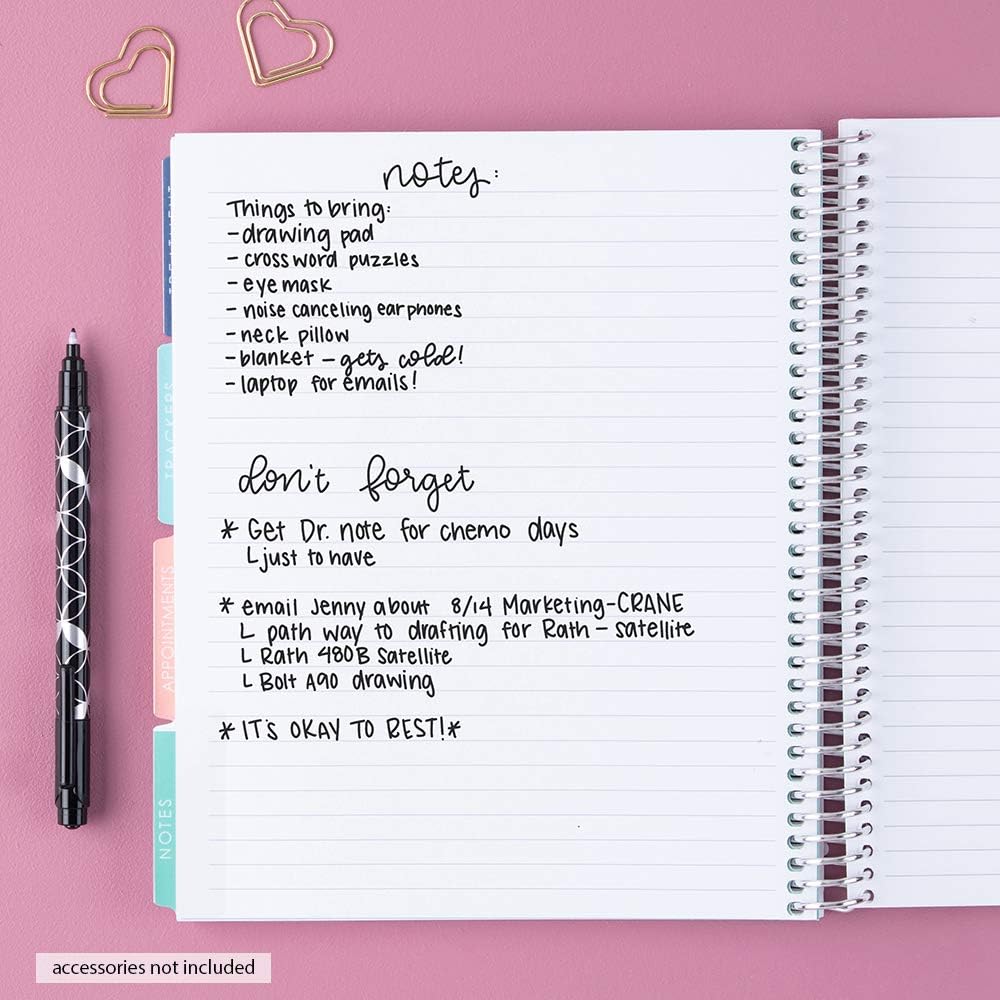 notes:
Things to bring:
- drawing pad
- crossword puzzles
- eye mask
- noise canceling earphones
- neck pillow
- blanket - gets cold!
- laptop for emails!
don't forget
* Get Dr. note for chemo days
L just to have
* email Jenny about 8/14 Marketing-CRANE
L path way to drafting for Rath - satellite
L Rath 480B Satellite
L Bolt A90 drawing
* IT'S OKAY TO REST! *
TREATMENT
TRACKERS
APPOINTMENTS
NOTES
accessories not included